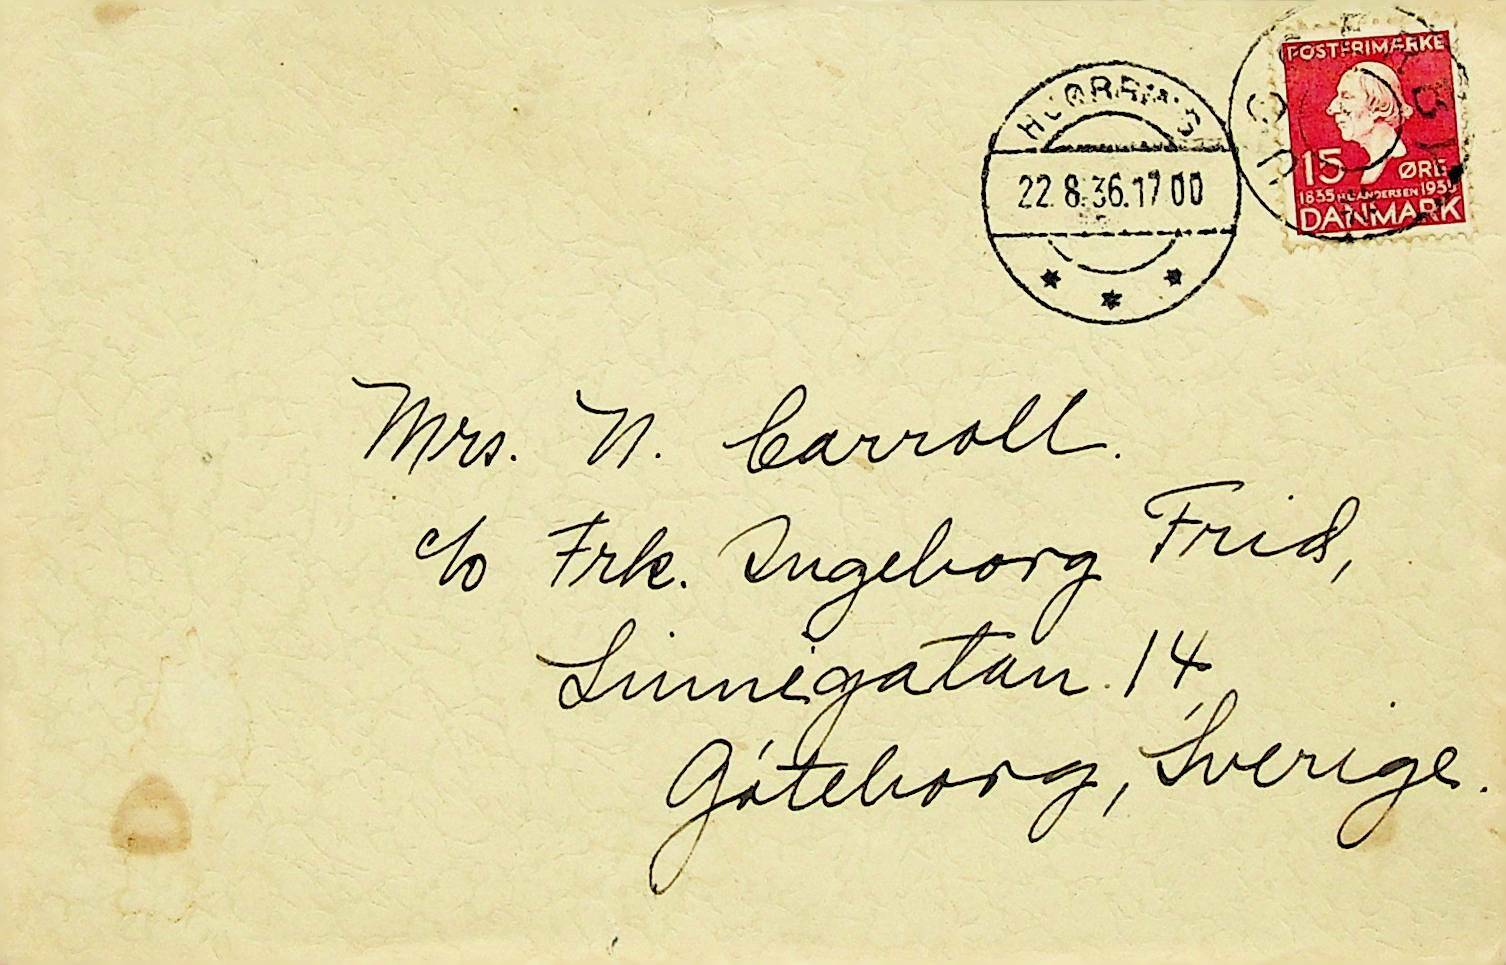 HJØRRING
22.8.36.17 00
POSTFRIMÆRKE
15 ØRE
1835 H.C. ANDERSEN 1935
DANMARK
Mrs. N. Carroll.
c/o Frk. Ingeborg Frid,
Linnégatan 14,
Góteborg, Sverige.